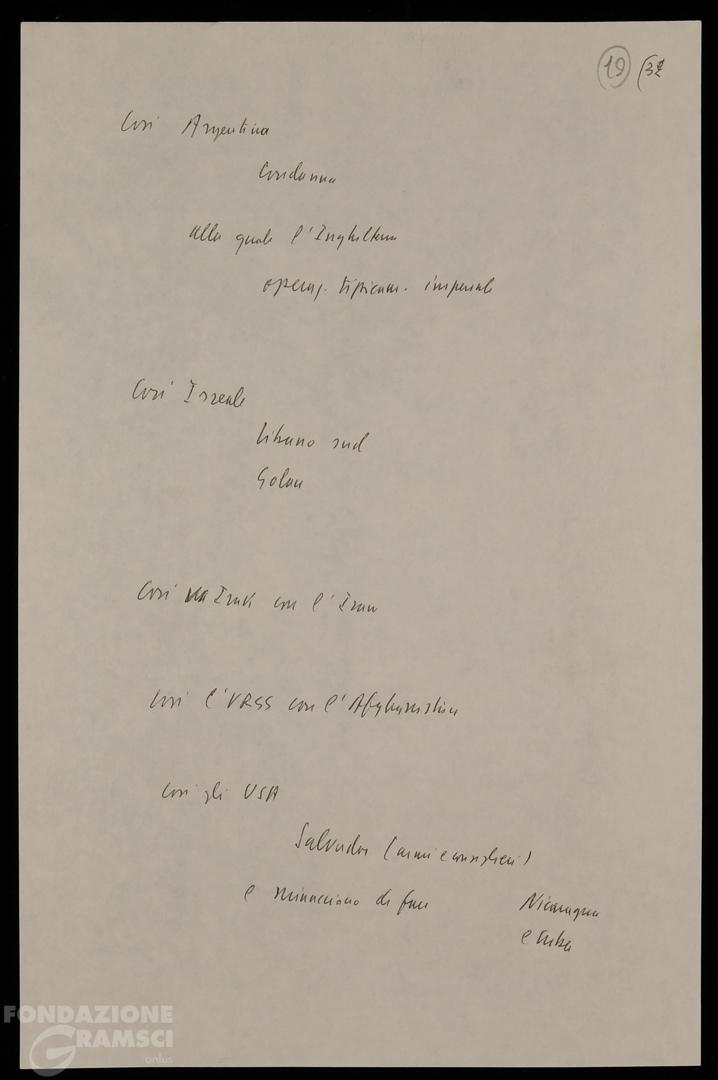 19 (32
Così Argentina
Condanna
alla quale l'Inghilterra
operaz. tipicam. imperiale
Così Israele
Libano sud
Golan
Così Irak con l'Iran
Così l'URSS con l'Afghanistan
Così gli USA
Salvador (armi e consiglieri)
e minacciano di fare Nicaragua
e Cuba
FONDAZIONE
GRAMSCI
onlus